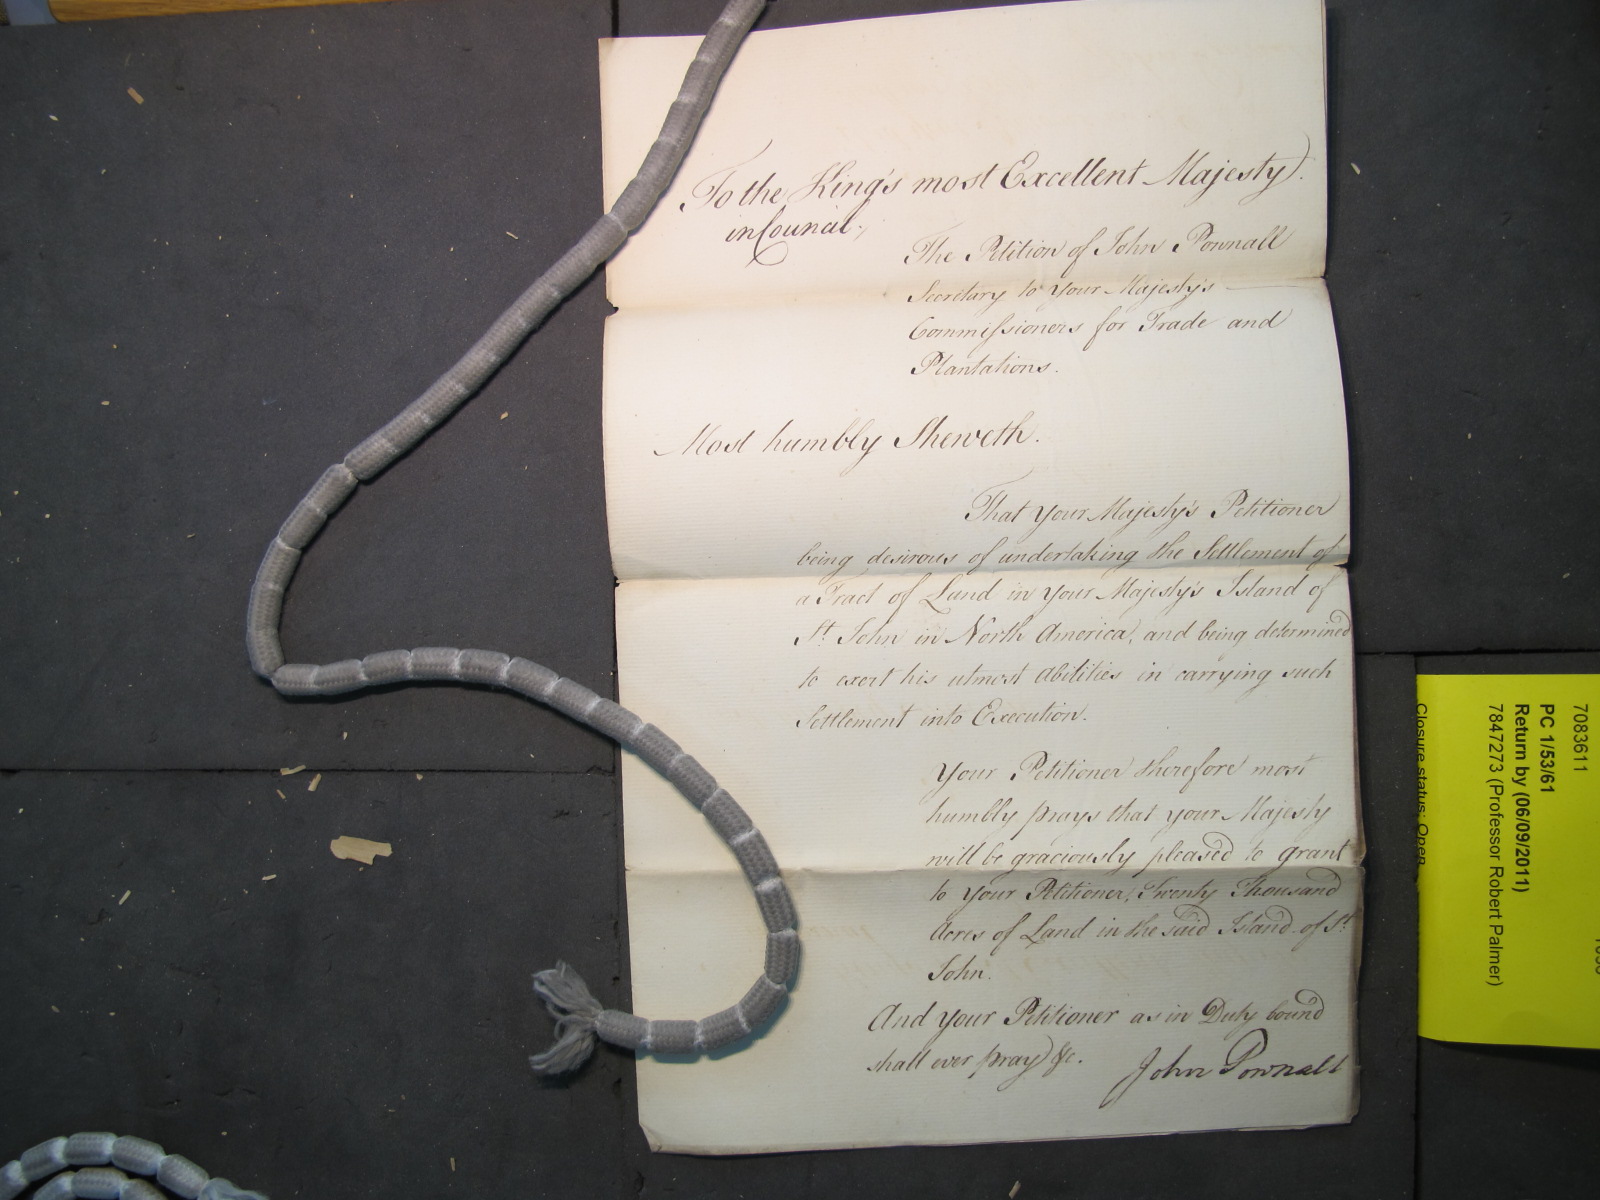 To the King's most Excellent Majesty
in Council.
The Petition of John Pownall
Secretary to Your Majesty's
Commissioners for Trade and
Plantations.
Most humbly Sheweth.
That Your Majesty's Petitioner
being desirous of undertaking the Settlement of
a Tract of Land in Your Majesty's Island of
St. John in North America, and being determined
to exert his utmost Abilities in carrying such
Settlement into Execution.
Your Petitioner therefore most
humbly prays that your Majesty
will be graciously pleased to grant
to Your Petitioner, Twenty Thousand
Acres of Land in the said Island of St.
John.
And Your Petitioner as in Duty bound
shall ever pray &c.
John Pownall
7083611
PC 1/53/61
Return by (06/09/2011)
7847273 (Professor Robert Palmer)
Closure status: Open